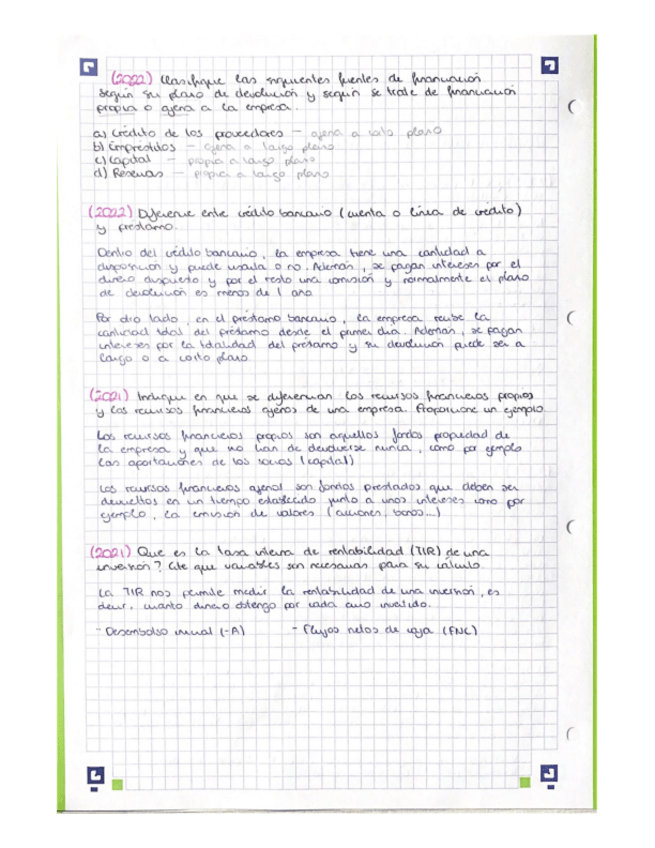 (2022) Clasifique las siguientes fuentes de financiación
según su plazo de devolución y según se trate de financiación
propia o ajena a la empresa.
a) Crédito de los proveedores - ajena a corto plazo
b) Empréstidos - ajena a largo plazo
c) Capital - propia a largo plazo
d) Reservas - propia a largo plazo
(2022) Diferencie entre crédito bancario (cuenta o línea de crédito)
y préstamo.
Dentro del crédito bancario, la empresa tiene una cantidad a
disposición y puede usarla o no. Además, se pagan intereses por el
dinero dispuesto y por el resto una comisión y normalmente el plazo
de devolución es menos de 1 año.
Por otro lado, en el préstamo bancario, la empresa recibe la
cantidad total del préstamo desde el primer día. Además, se pagan
intereses por la totalidad del préstamo y su devolución puede ser a
largo o a corto plazo.
(2021) Indique en que se diferencian los recursos financieros propios
y los recursos financieros ajenos de una empresa. Proporcione un ejemplo.
Los recursos financieros propios son aquellos fondos propiedad de
la empresa y que no han de devolverse nunca, como por ejemplo
las aportaciones de los socios (capital)
Los recursos financieros ajenos son fondos prestados que deben ser
devueltos en un tiempo establecido junto a unos intereses como por
ejemplo, la emisión de valores (acciones, bonos...)
(2021) Que es la tasa interna de rentabilidad (TIR) de una
inversión? Cite que variables son necesarias para su cálculo.
La TIR nos permite medir la rentabilidad de una inversión, es
decir, cuanto dinero obtengo por cada euro invertido.
- Desembolso inicial (-A) - Flujos netos de caja (FNC)